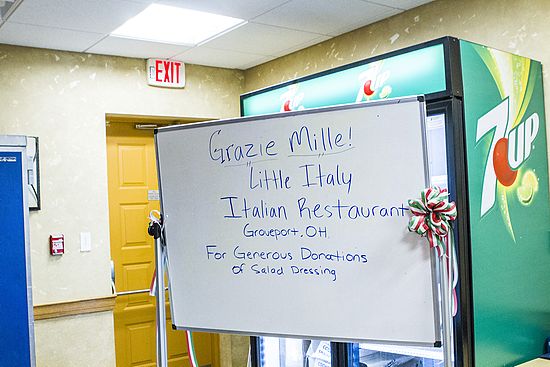 EXIT
Grazie Mille!
Little Italy
Italian Restaurant
Groveport, OH
For Generous Donations
of Salad Dressing
7UP